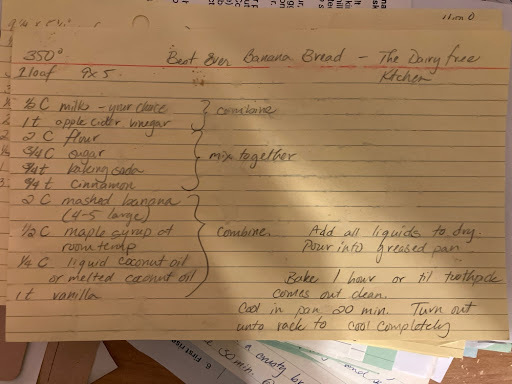 350°
Best Ever Banana Bread - The Dairy free
Kitchen
1 loaf 9x5
½ C milk - your choice } combine
1 t apple cider vinegar
2 C flour
3/4 C sugar } mix together
3/4 t baking soda
3/4 t cinnamon
2 C mashed banana
(4-5 large)
1/2 C maple syrup at
room temp
1/4 C liquid coconut oil
or melted coconut oil
1 t vanilla
combine. Add all liquids to dry.
Pour into greased pan
Bake 1 hour or til toothpick
comes out clean.
Cool in pan 20 min. Turn out
unto rack to cool completely